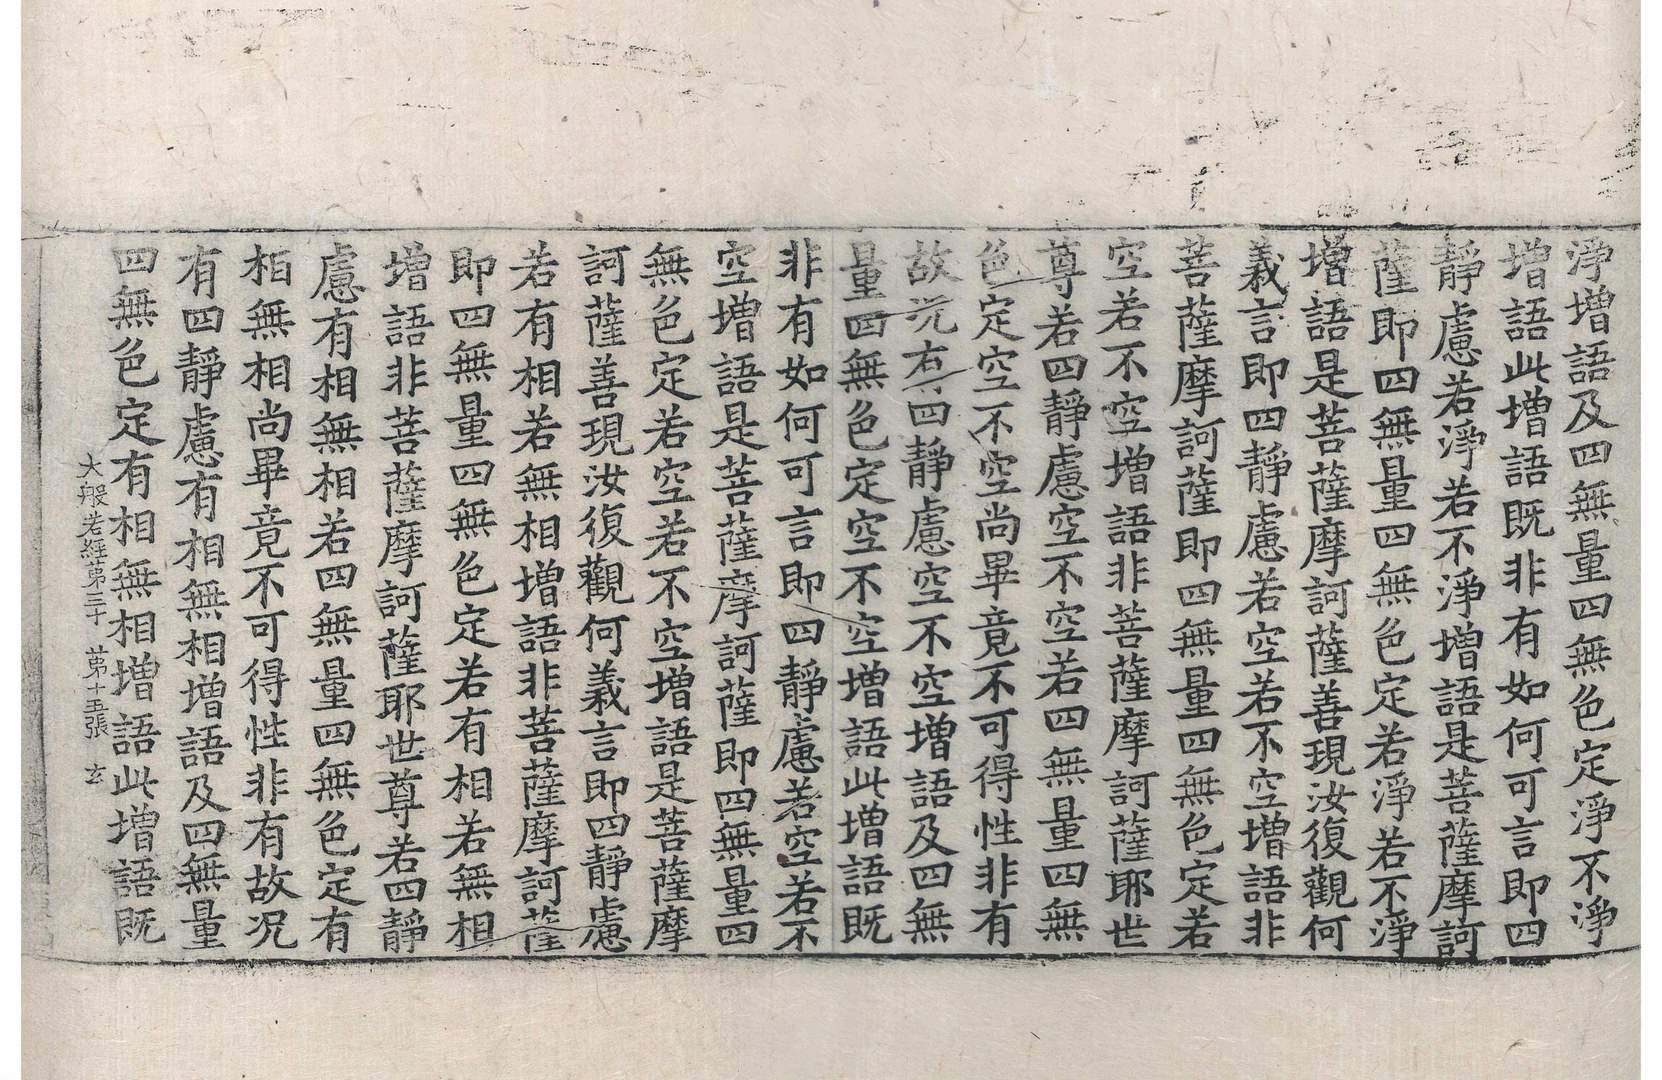 淨增語及四無量四無色定淨不淨
增語此增語既非有如何可言即四
靜慮若淨若不淨增語是菩薩摩訶
薩即四無量四無色定若淨若不淨
增語是菩薩摩訶薩善現汝復觀何
義言即四靜慮若空若不空增語非
菩薩摩訶薩即四無量四無色定若
空若不空增語非菩薩摩訶薩耶世
尊若四靜慮空不空若四無量四無
色定空不空尚畢竟不可得性非有
故况有四靜慮空不空增語及四無
量四無色定空不空增語此增語既
非有如何可言即四靜慮若空若不
空增語是菩薩摩訶薩即四無量四
無色定若空若不空增語是菩薩摩
訶薩善現汝復觀何義言即四靜慮
若有相若無相增語非菩薩摩訶薩
即四無量四無色定若有相若無相
增語非菩薩摩訶薩耶世尊若四靜
慮有相無相若四無量四無色定有
相無相尚畢竟不可得性非有故况
有四靜慮有相無相增語及四無量
四無色定有相無相增語此增語既
大般若經第三十 第十五張 玄